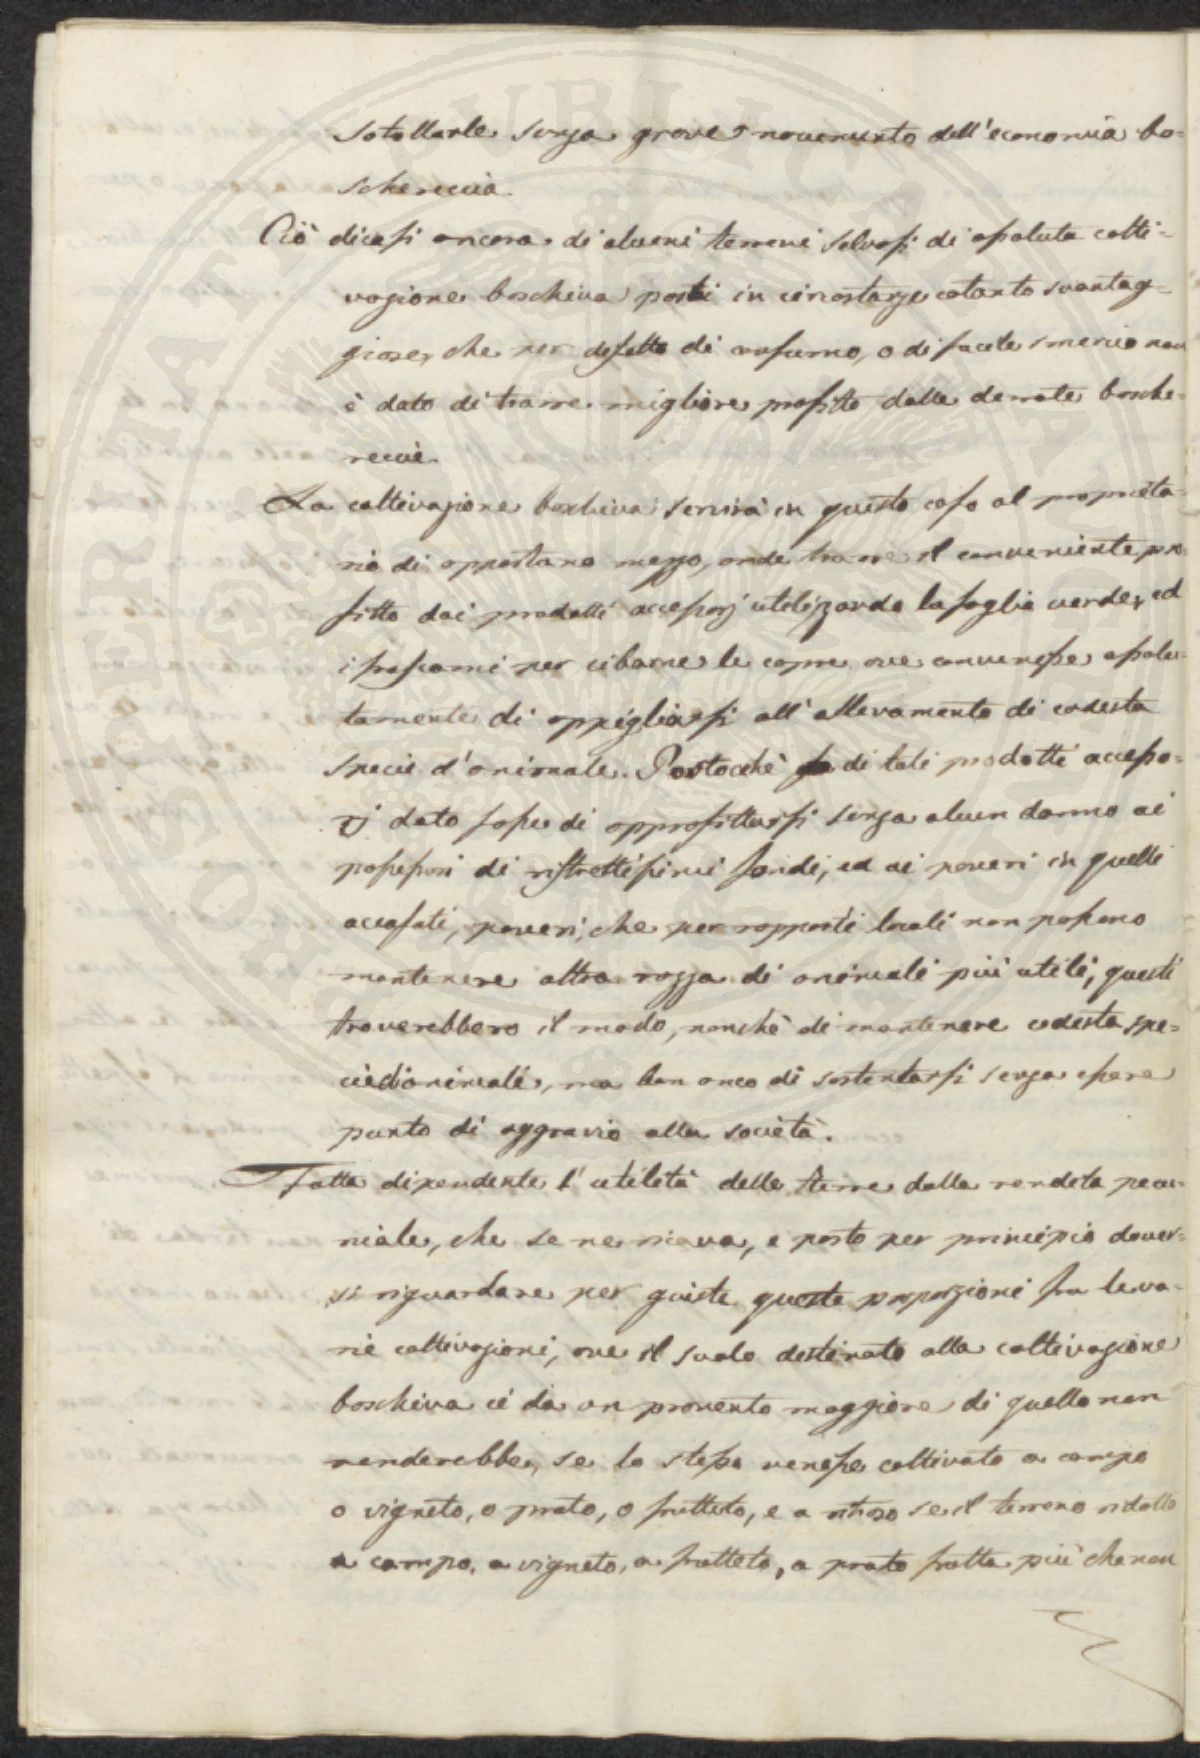 satollarle senza grave nocumento dell'economia bo-
schereccia.
Ciò dicasi ancora di alcuni terreni selvosi di assoluta colti-
vazione boschiva posti in circostanze cotanto svantag-
giose, che per difetto di consumo, o di facile smercio non
è dato di trarre migliore profitto dalle derrate bosche-
reccie.
La coltivazione boschiva servirà in questo caso al proprieta-
rio di opportuno mezzo, onde trarre il conveniente pro-
fitto dai prodotti accessorj utilizzando la foglia verde, ed
i frascami per cibarne le capre ove convenisse assolu-
tamente di appigliarsi all'allevamento di codesta
specie d'animale. Postocchè di tali prodotti accesso-
rj dato fosse di approfittarsi senza alcun danno ai
possessori di ristrettissimi fondi, ed ai poveri in quelli
accasati, poveri, che per rapporti locali non possono
mantenere altra razza di animali più utili, questi
troverebbero il modo, nonchè di mantenere codesta spe-
cie d'animali, ma ben anco di sostentarsi senza essere
punto di aggravio alla società.
Fatta dipendente l'utilità delle terre dalla rendita pecu-
niale, che se ne ricava, e posto per principio dover-
si riguardare per giuste queste proporzioni fra le va-
rie coltivazioni, ove il suolo destinato alla coltivazione
boschiva ci dà un provento maggiore di quello non
renderebbe, se lo stesso venisse coltivato a campo
o vigneto, o prato, o frutteto, e a ritroso se il terreno ridotto
a campo, a vigneto, a frutteto, a prato frutta più che non
POSTERITATI PUBLICAE